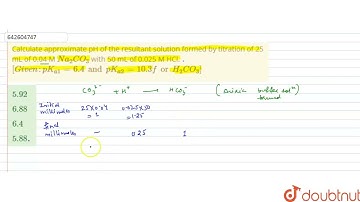 642604747
Calculate approximate pH of the resultant solution formed by titration of 25
mL of 0.04 M Na₂CO₃ with 50 mL of 0.025 M HCl. ,
[Given : pKₐ₁ = 6.4 and pKₐ₂ = 10.3 f or H₂CO₃]
5.92 CO₃²⁻ + H⁺ → HCO₃⁻ (buffer solⁿ
formed
6.88 Initial millimoles 25×0.04 0.025×50
= 1 = 1.25
6.4
5.88. final millimoles – 0.25 1
doubtnut